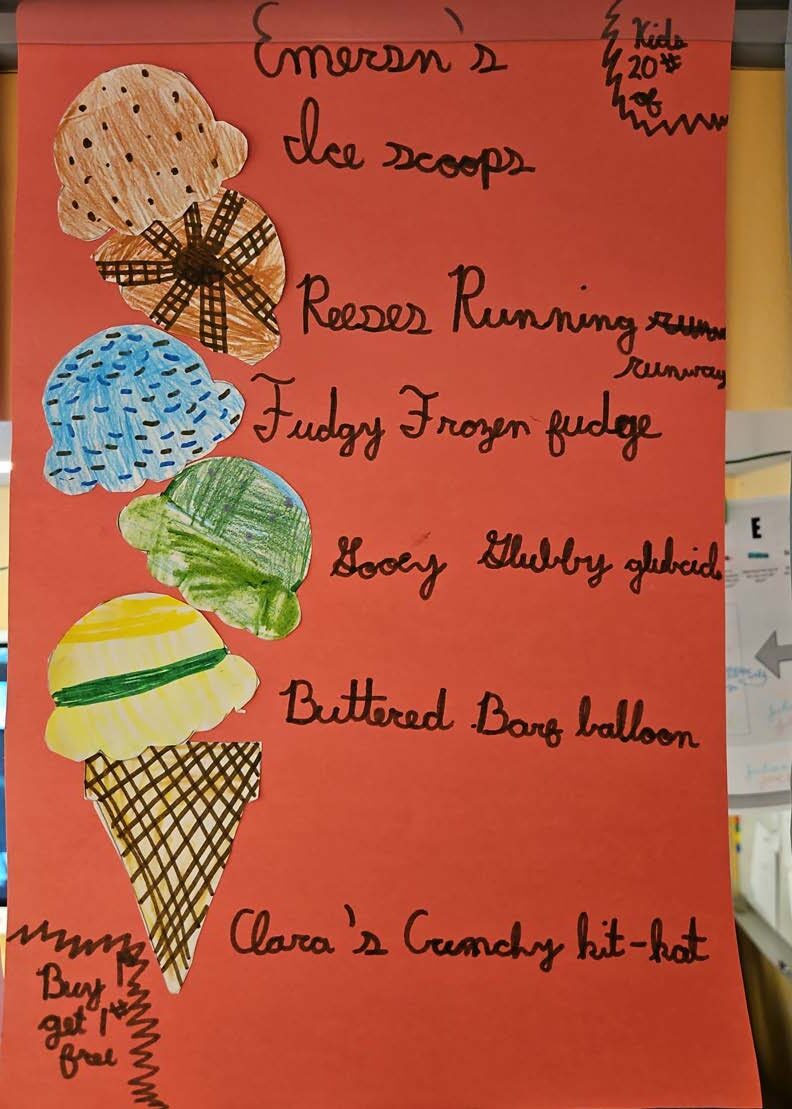 Emersn's
Kids
20#
of
Ice scoops
Reeses Running
runway
Fudgy Frozen fudge
Gooey Glubby glubcid
Buttered Barf balloon
Clara's Crunchy kit-kat
Buy 1#
get 1#
free
E